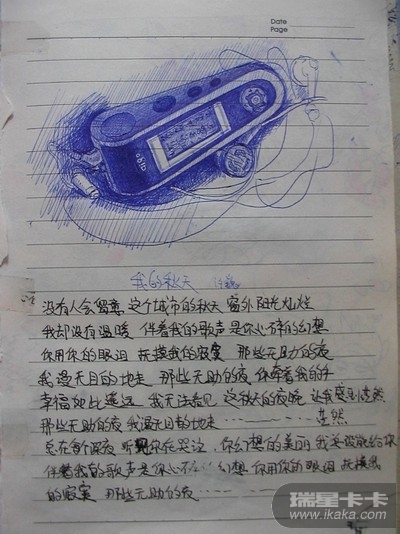 Date
Page
我的秋天 许巍
没有人会留意 这个城市的秋天 窗外阳光灿烂
我却没有温暖 伴着我的歌声 是你心碎的幻想
你用你的眼泪 抚摸我的寂寞 那些无助的夜
我漫无目的地走 那些无助的夜 你牵着我的手
幸福如此遥远 我无法看见 这秋天的夜晚 让我感到茫然
那些无助的夜 我漫无目的地走 茫然
总在每个深夜 听见你在哭泣 你幻想的美丽 我无法给你
伴着我的歌声 是你心 幻想 你用你的眼泪 抚摸我
的寂寞 那些无助的夜
瑞星卡卡
www.ikaka.com